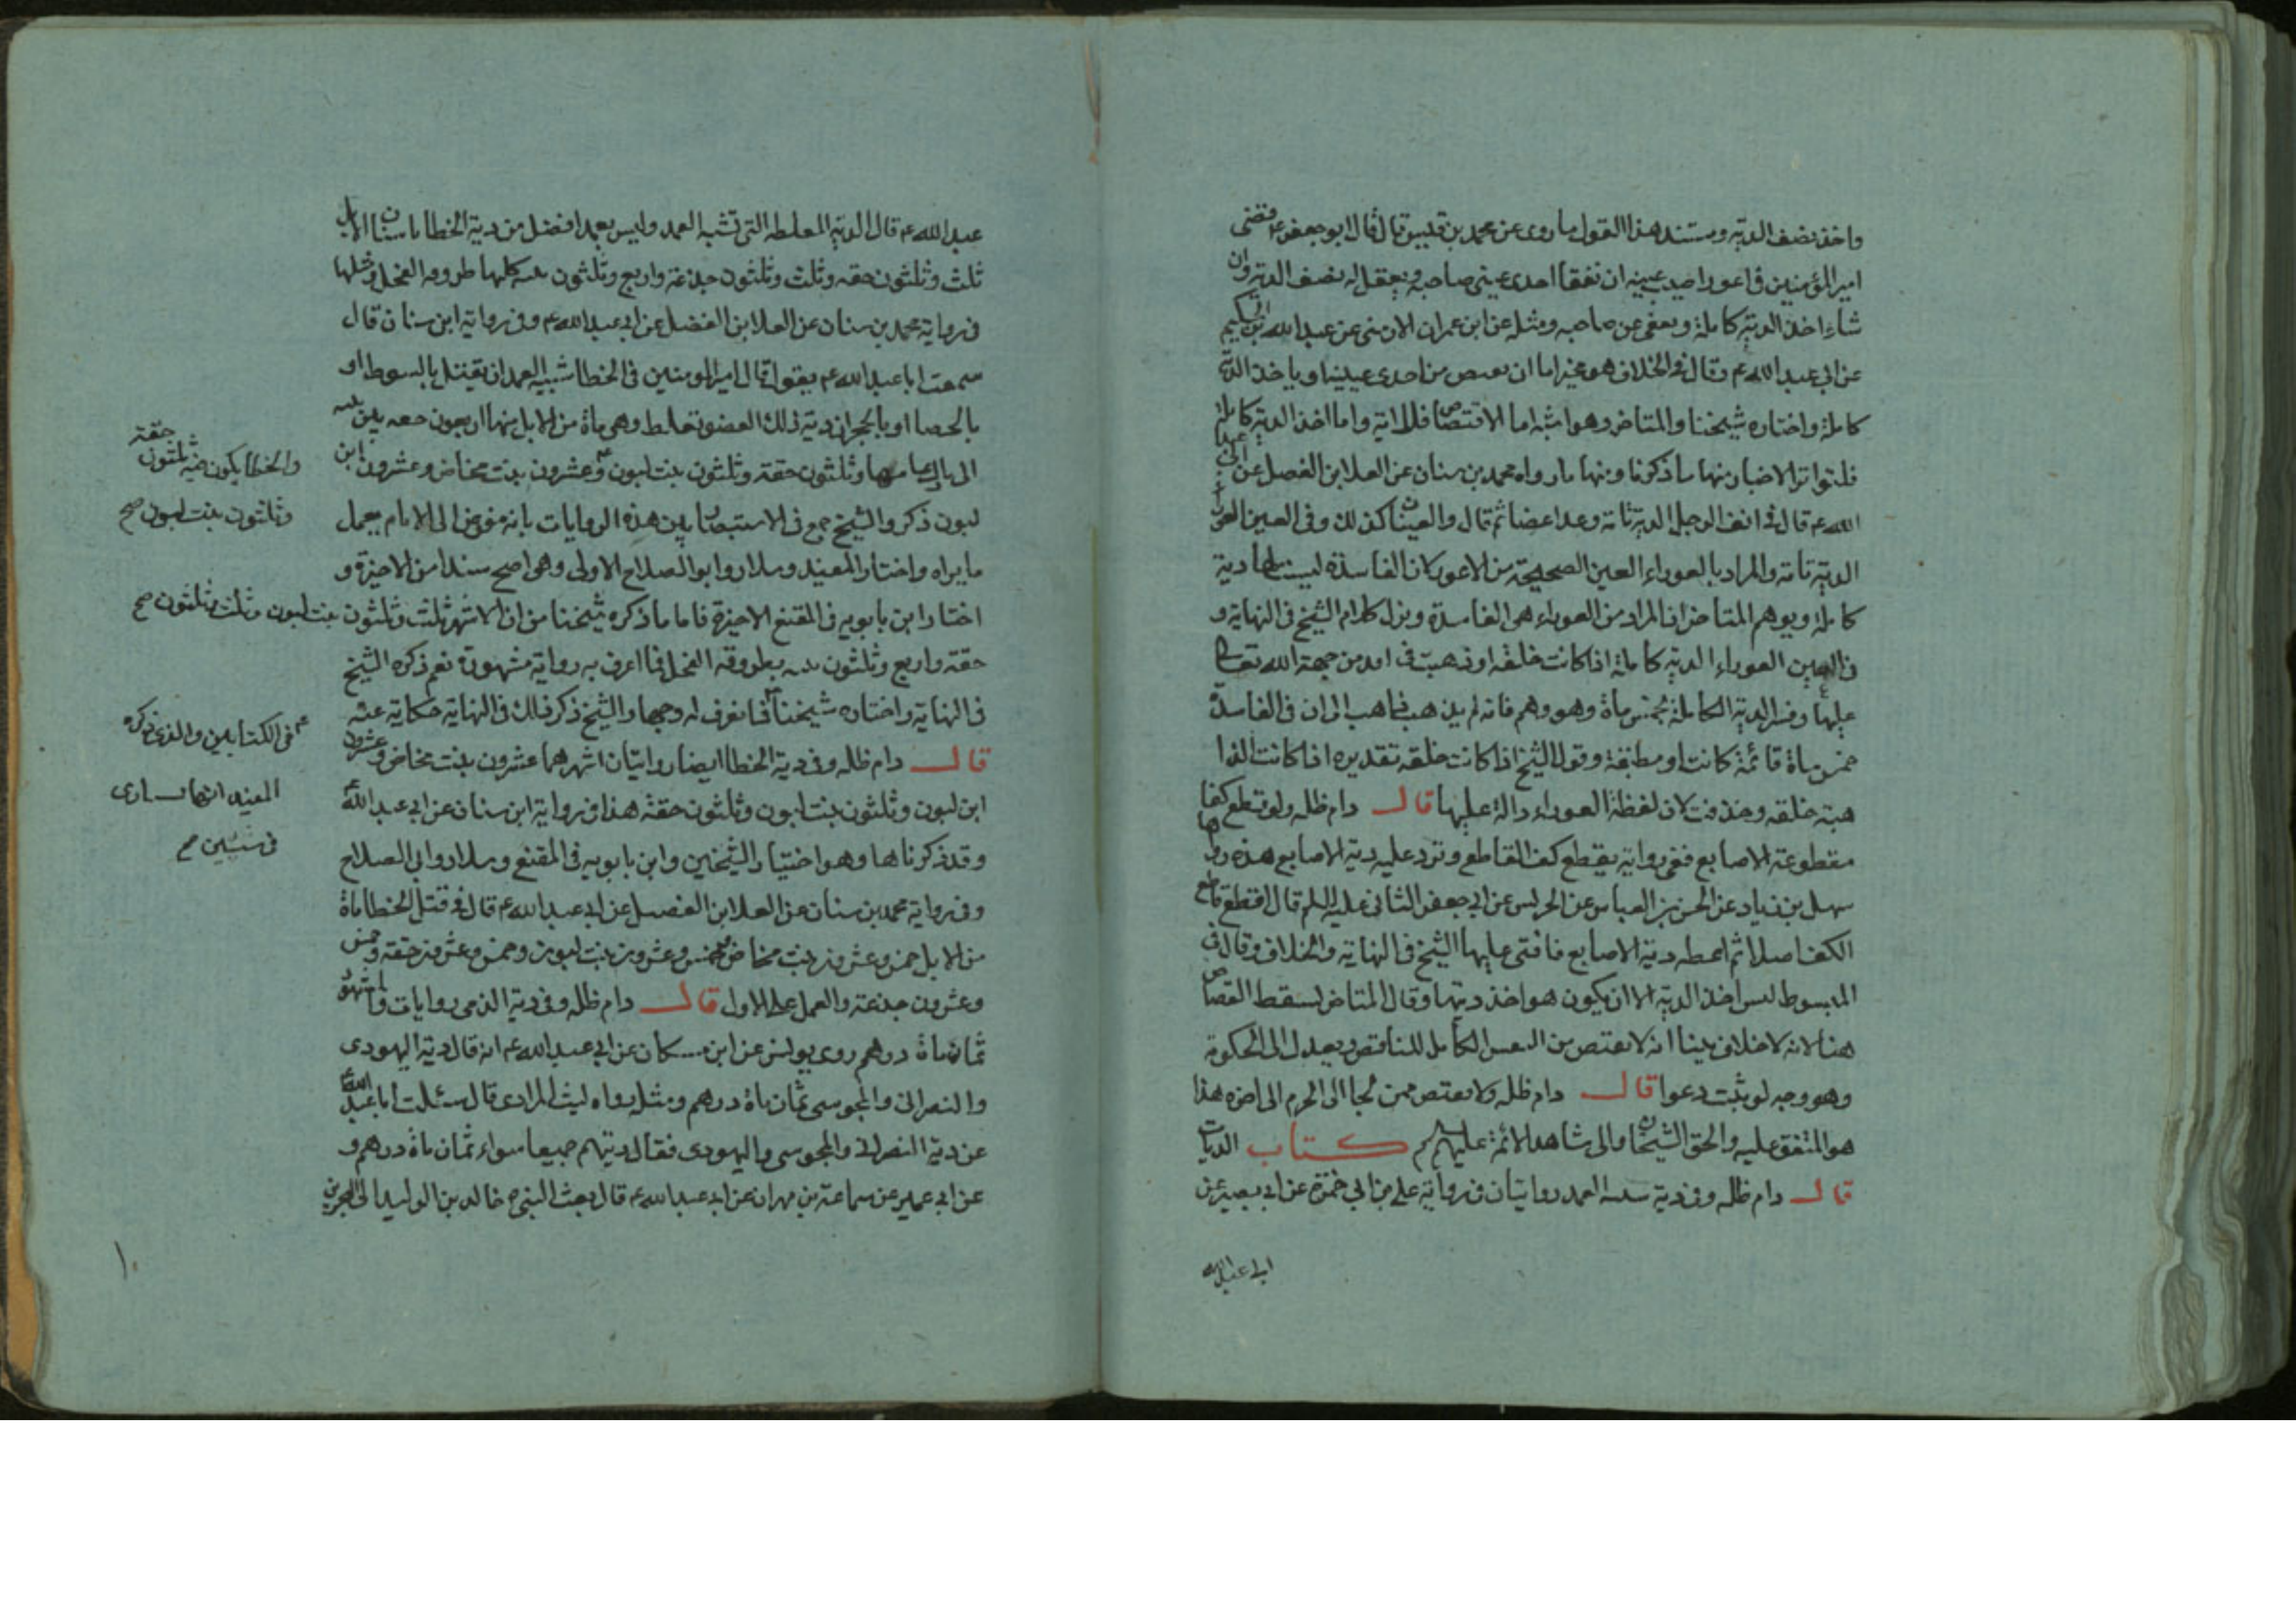 واخذ نصف الدية ومستند هذا القول ما روى عن محمد بن قيس قال قال ابو جعفر ع قضى
امير المؤمنين في اعور اصيب عينه ان تفقأ احدى عيني صاحبه ويعقل له نصف الدية وان
شاء اخذ الدية كاملة ويعفى عن صاحبه ومثله عن ابن عمران الارمنى عن عبد الله بن الحكيم
عن ابي عبد الله ع وقال في الخلاف هو مخير اما ان يقتص من احدى عينيه او ياخذ الدية
كاملة واختاره شيخنا والمتاخر وهو اشبه اما الاقتصاص فللاية واما اخذ الدية كاملة
فلتواتر الاخبار منها ما ذكرنا ومنها ما رواه محمد بن سنان عن العلا ابن الفضل عن ابي عبد
الله ع قال في انف الرجل الدية تامة وعد اعضا ثم قال والعينان كذلك وفي العين العوراء
الدية تامة والمراد بالعوراء العين الصحيحة من الاعور كان الفاسدة ليست لها دية
كاملة ويوهم المتاخر ان المراد من العوراء هي الفاسدة ونزل كلام الشيخ في النهاية و
في العين العوراء الدية كاملة اذا كانت خلقه او ذهبت في امد من جهة الله تعالى
عليها وفسر الدية الكاملة بخمس ماة وهو وهم فانه لم يذهب ذاهب الى ان في الفاسدة
خمس ماة قائمة كانت او مطبقة وقول الشيخ اذا كانت خلقه تقديره اذا كانت الذا
هبة خلقه وحذفت لان لفظة العوراء دالة عليها قال دام ظله ولو قطع كفا
مقطوعة الاصابع ففي رواية يقطع كف القاطع وترد عليه دية الاصابع هذه رواها
سهل بن زياد عن الحسن بن العباس عن الحريس عن ابي جعفر الثاني عليه السلم قال اقطع قاطع
الكف اصلا ثم اعطه دية الاصابع فافتى عليها الشيخ في النهاية والخلاف وقال في
المبسوط ليس اخذ الدية الا ان يكون هو اخذ ديتها وقال المتاخر يسقط القصاص
هنا لانه لا خلاف بيننا انه لا يقتص من العضو الكامل للناقص ويعدل الى الحكومة
وهو وجه لو ثبت دعوا قال دام ظله ولا يقتص ممن لجا الى الحرم الى اخره هذا
هو المتفق عليه والحق الشيخان والى شاهد الائمة عليهم السلم كتاب الديات
قال دام ظله وفي دية شبه العمد روايتان في رواية على بن ابي حمزة عن ابي بصير عن
ابي عبد الله
عبد الله ع قال الدية المغلظه التي تشبه العمد وليس بعمد افضل من دية الخطا باسنان الابل
ثلث وثلثون حقه وثلث وثلثون جذعة واربع وثلثون ثنيه كلها طروقه الفحل ومثلها
في رواية محمد بن سنان عن العلا ابن الفضل عن ابي عبد الله ع وفي رواية ابن سنان قال
سمعت ابا عبد الله ع يقول قال امير المومنين في الخطا شبيه العمد ان يقتل بالسوط او
بالعصا او بالحجر ان دية ذلك العضو تغلظ وهي ماة من الابل منها اربعون خلفه بين ثنيه
الى بازل عامها وثلثون حقة وثلثون بنت لبون وعشرون بنت مخاض وعشرون ابن
والخطا يكون فيه ثلثون حقة
وثلثون بنت لبون صح
لبون ذكر والشيخ جمع في الاستبصار بين هذه الروايات بانه مفوض الى الامام يعمل
ما يراه واختار المفيد وسلار وابو الصلاح الاولى وهي اصح سندا من الاخيرة و
اختار ابن بابويه في المقنع الاخيرة فاما ما ذكره شيخنا من ان الاشهر ثلث وثلثون بنت لبون وثلث وثلثون صح
حقة واربع وثلثون ثنيه طروقه الفحل فما اعرف به رواية مشهورة نعم ذكره الشيخ
في النهاية واختاره شيخنا فما نعرف له وجها والشيخ ذكر ذلك في النهاية حكاية عنه
في الكتابين والذي ذكره
المفيد
في سنتين صح
قال دام ظله وفي دية الخطا ايضا روايتان اشهرهما عشرون بنت مخاض وعشرون
ابن لبون وثلثون بنت لبون وثلثون حقة هذا في رواية ابن سنان عن ابي عبد الله ع
وقد ذكرناها وهو اختيار الشيخين وابن بابويه في المقنع وسلار وابي الصلاح
وفي رواية محمد بن سنان عن العلا ابن الفضيل عن ابي عبد الله ع قال في قتل الخطا ماة
من الابل خمس وعشرون بنت مخاض وخمس وعشرون بنت لبون وخمس وعشرون حقه وخمس
وعشرون جذعة والعمل على الاول قال دام ظله وفي دية الذمي روايات واشهر
ثمان ماة درهم روى يونس عن ابن مسكان عن ابي عبد الله ع انه قال دية اليهودى
والنصراني والمجوسى ثمان ماة درهم ومثله رواه ليث المرادى قال سئلت ابا عبد الله ع
عن دية النصراني والمجوسى واليهودى فقال ديتهم جميعا سواء ثمان ماة درهم و
عن ابي عمير عن سماعة بن مهران عن ابي عبد الله ع قال بعث النبي ص خالد بن الوليد الى البحرين
١٠